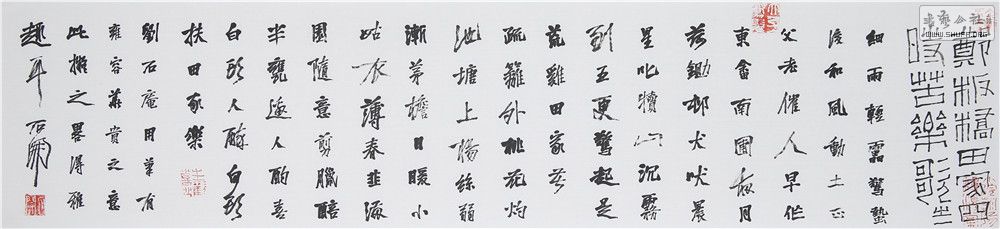 书艺公社
WWW.SHUFA.ORG
鄭板橋田家四
時苦樂歌之一
細雨輕雷驚蟄
後和風動土正
父老催人早作
東畬南圃夜月
荷鋤邨犬吠晨
星叱犢山沉霧
到五更驚起是
荒雞田家苦
疏籬外桃花灼
池塘上楊絲弱
漸茅檐日暖小
姑衣薄春韭滿
園隨意剪臘醅
半甕邀人酌喜
白頭人醉白頭
扶田家樂
劉石庵用筆有
雍容華貴之意
此擬之畧得雅
趣耳